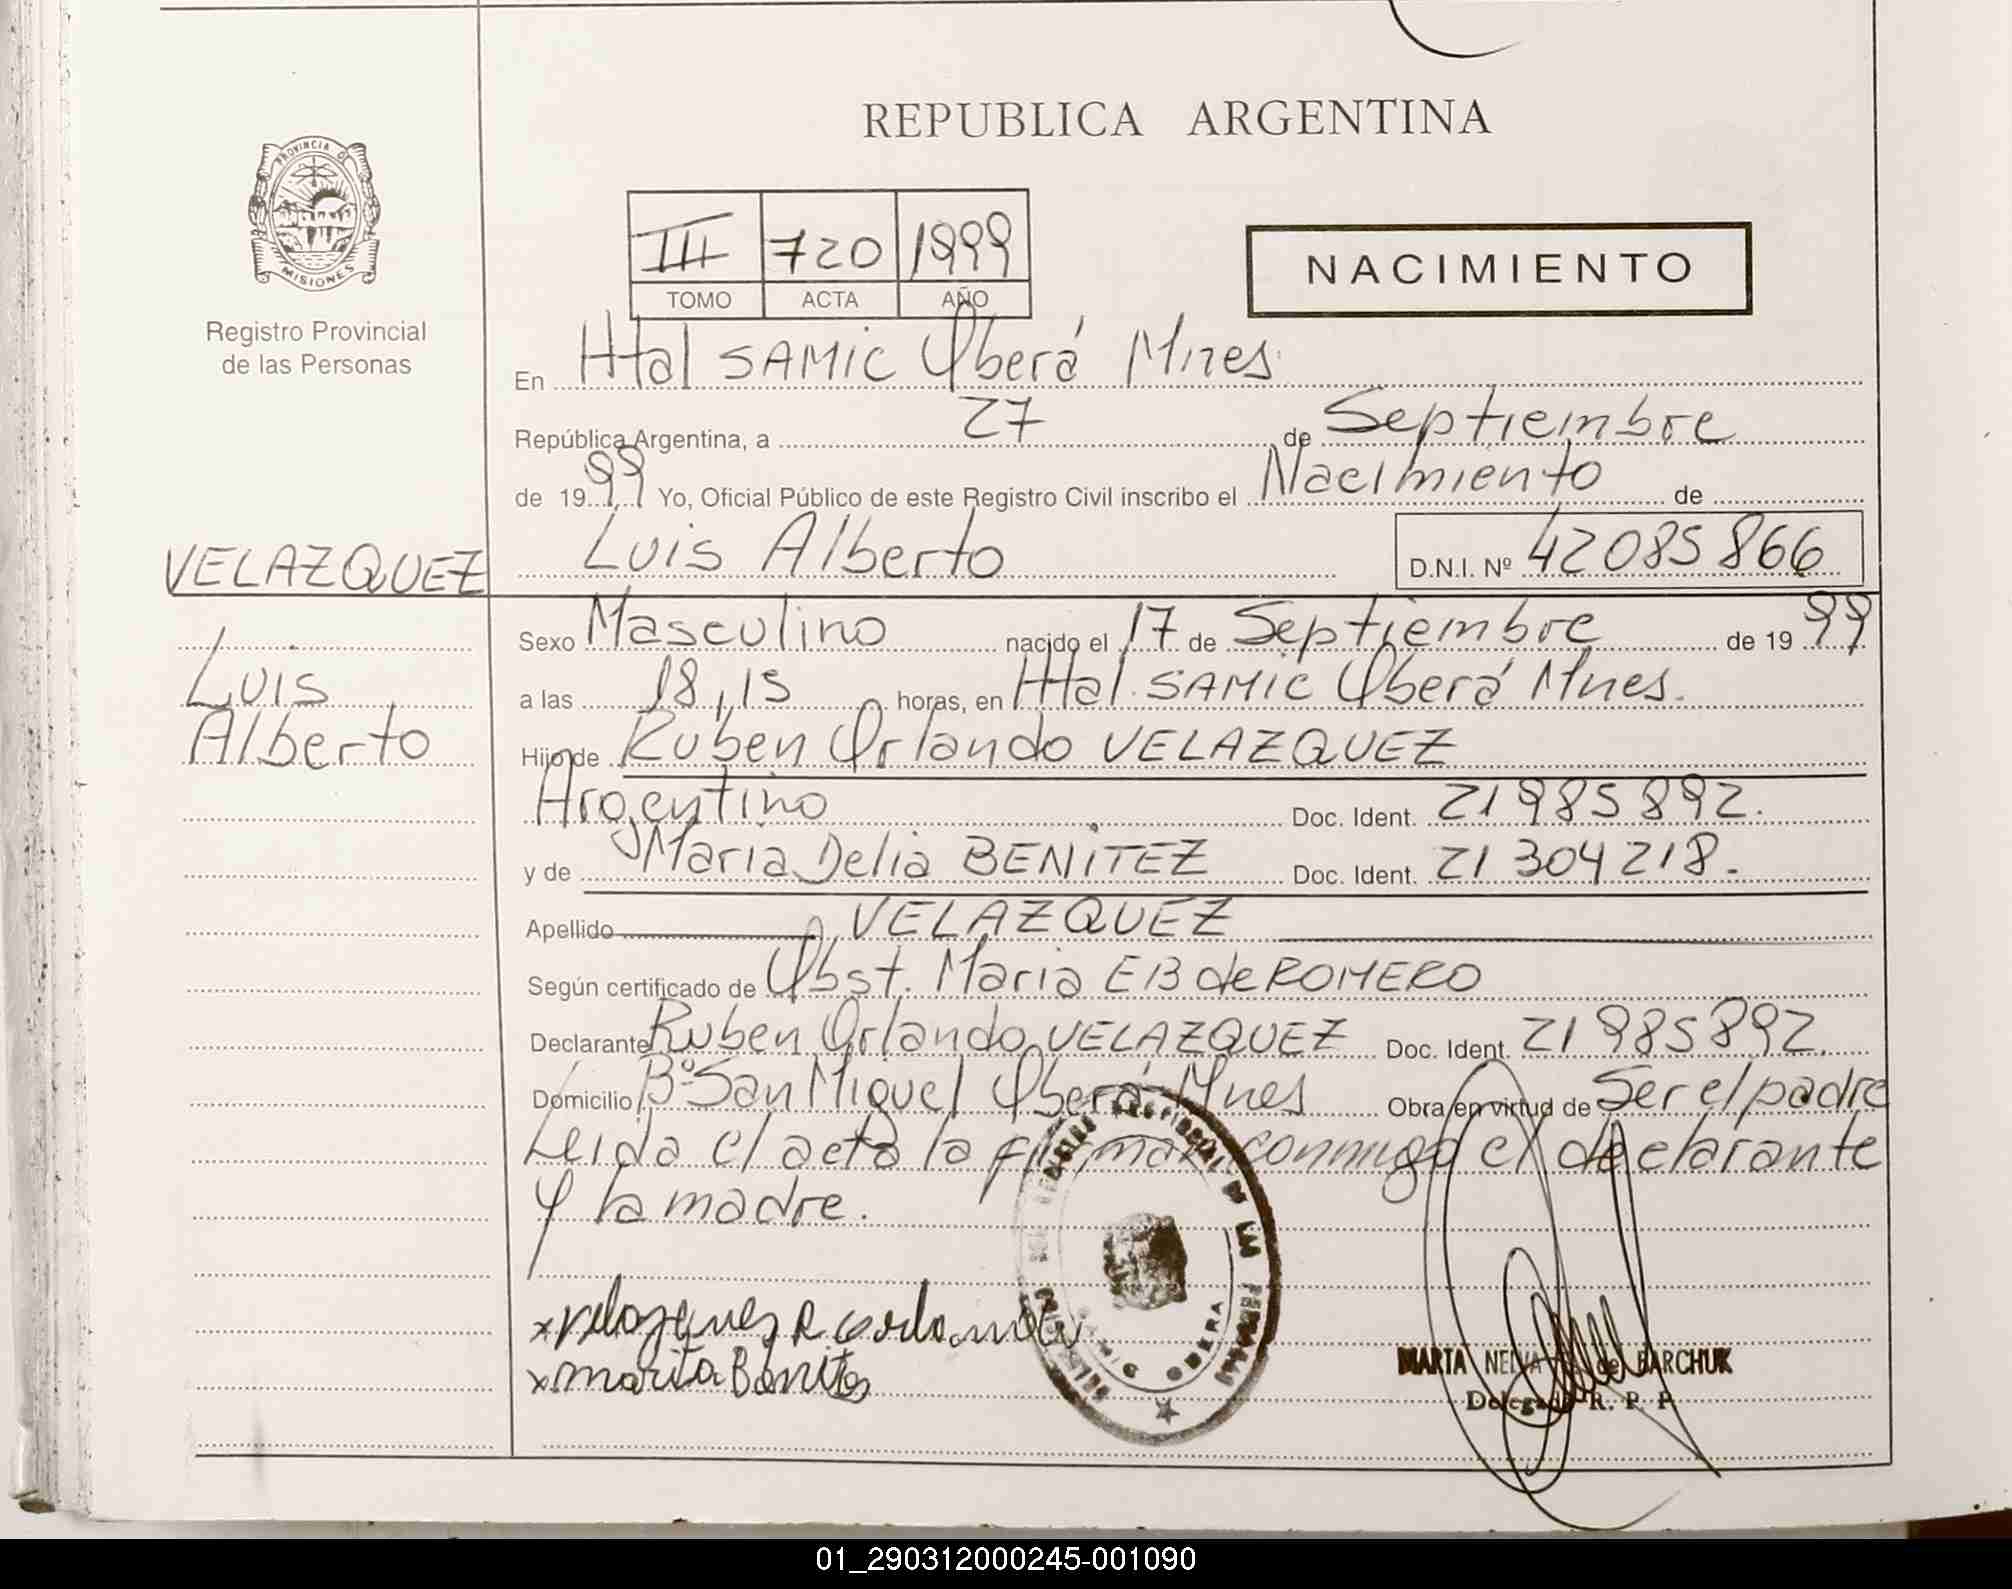 REPUBLICA ARGENTINA
PROVINCIA DE
MISIONES
Registro Provincial
de las Personas
III 720 1999
TOMO ACTA AÑO
NACIMIENTO
En Htal SAMIC Oberá Mnes
República Argentina, a 27 de Septiembre
de 1999 Yo, Oficial Público de este Registro Civil inscribo el Nacimiento de
Luis Alberto D.N.I. Nº 42085866
VELAZQUEZ
Luis
Alberto
Sexo Masculino nacido el 17 de Septiembre de 1999
a las 18,15 horas, en Htal. SAMIC Oberá Mnes.
Hijo de Ruben Orlando VELAZQUEZ
Argentino Doc. Ident. 21985892.
y de Maria Delia BENITEZ Doc. Ident. 21304218.
Apellido VELAZQUEZ
Según certificado de Obst. Maria EB de ROMERO
Declarante Ruben Orlando VELAZQUEZ Doc. Ident. 21985892.
Domicilio Bº San Miguel Oberá Mnes Obra en virtud de Ser el padre
Leida el acta la firman conmigo el declarante
y la madre.
OBERA
x marita Benites
MARTA NELVA de BARCHUK
Delegada R. P. P.
01_290312000245-001090